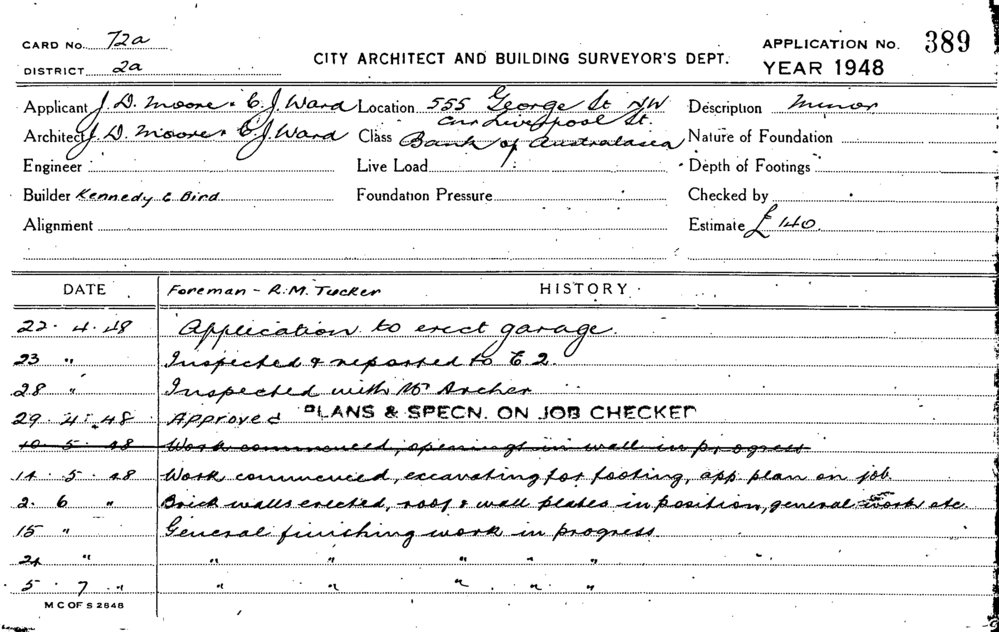 CARD No. 72a
DISTRICT 2a
CITY ARCHITECT AND BUILDING SURVEYOR'S DEPT.
APPLICATION No. 389
YEAR 1948
Applicant J. D. Moore & C. J. Ward Location 555 George St NW Description Minor
cnr Liverpool St.
Architect J. D. Moore & C. J. Ward Class Bank of Australasia Nature of Foundation
Engineer Live Load Depth of Footings
Builder Kennedy & Bird Foundation Pressure Checked by
Alignment Estimate £140.
DATE Foreman - R.M. Tucker HISTORY
22. 4. 48 Application to erect garage.
23 " Inspected & reported to E.2.
28 " Inspected with Mr Archer
29. 4. 48 Approved PLANS & SPECN. ON JOB CHECKED
10 5 48 Work commenced, openings in wall in progress
14. 5. 48 Work commenced, excavating for footing, app. plan on job.
2. 6 " Brick walls erected, roof & wall plates in position, general work etc.
15 " General finishing work in progress
24 " " " " " "
5. 7. " " " " " "
M C OF S 2848